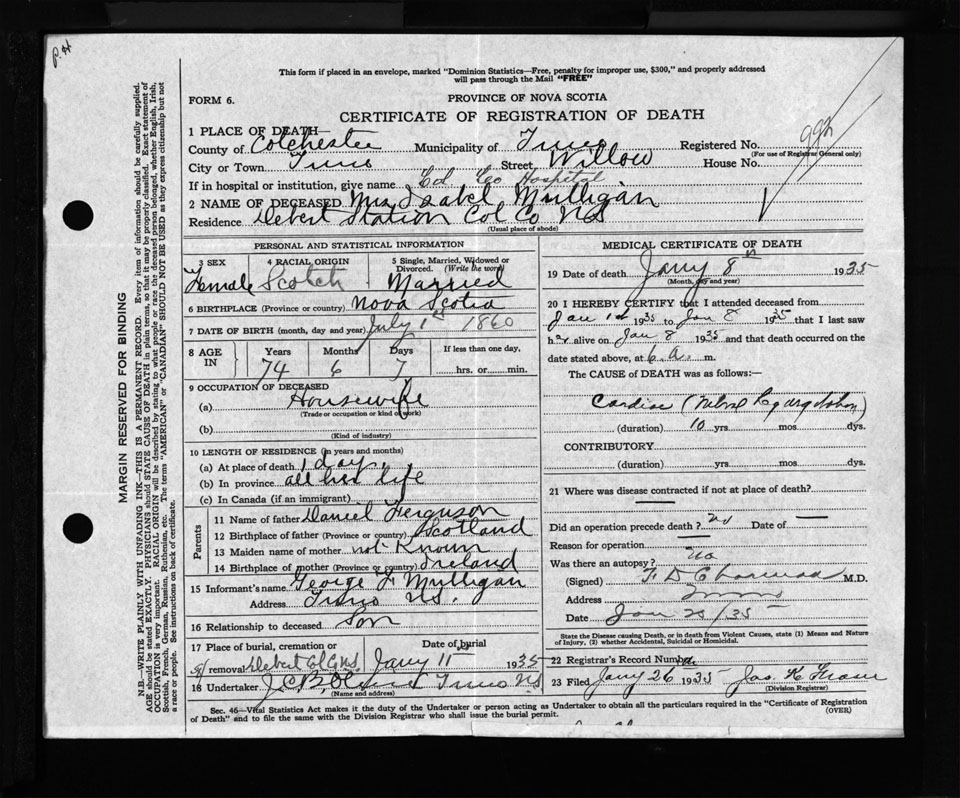 P.H
This form if placed in an envelope, marked "Dominion Statistics—Free, penalty for improper use, $300," and properly addressed
will pass through the Mail "FREE"
FORM 6.
PROVINCE OF NOVA SCOTIA
CERTIFICATE OF REGISTRATION OF DEATH
1 PLACE OF DEATH
County of Colchester Municipality of Truro Registered No. 992
(For use of Registrar General only)
City or Town Truro Street Willow House No.
If in hospital or institution, give name Col Co Hospital
2 NAME OF DECEASED Mrs Isabel Mulligan
Residence Debert Station Col Co NS
(Usual place of abode)
PERSONAL AND STATISTICAL INFORMATION
3 SEX 4 RACIAL ORIGIN 5 Single, Married, Widowed or
Divorced. (Write the word)
Female Scotch Married
6 BIRTHPLACE (Province or country) Nova Scotia
7 DATE OF BIRTH (month, day and year) July 1st 1860
8 AGE IN Years Months Days If less than one day,
74 6 7 hrs. or min.
9 OCCUPATION OF DECEASED
(a) Housewife
(Trade or occupation or kind of work)
(b)
(Kind of industry)
10 LENGTH OF RESIDENCE (in years and months)
(a) At place of death 1 day
(b) In province all her life
(c) In Canada (if an immigrant)
Parents
11 Name of father Daniel Ferguson
12 Birthplace of father (Province or country) Scotland
13 Maiden name of mother not Known
14 Birthplace of mother (Province or country) Ireland
15 Informant's name George F Mulligan
Address Truro NS.
16 Relationship to deceased Son
17 Place of burial, cremation or Date of burial
removal Debert Col Co NS Jany 11 1935
18 Undertaker Truro NS
(Name and address)
MEDICAL CERTIFICATE OF DEATH
19 Date of death Jany 8th 1935
(Month, day and year)
20 I HEREBY CERTIFY that I attended deceased from
Jan 1st 1935 to Jan 8 1935 that I last saw
her alive on Jan 8 1935 and that death occurred on the
date stated above, at 6 a. m.
The CAUSE of DEATH was as follows:—
Cardiac
(duration) 10 yrs mos. dys.
CONTRIBUTORY
(duration) yrs mos dys.
21 Where was disease contracted if not at place of death?
Did an operation precede death? no Date of —
Reason for operation —
Was there an autopsy? no
(Signed) M.D.
Address Truro
Date Jan 25/35
State the Disease causing Death, or in death from Violent Causes, state (1) Means and Nature
of Injury, (2) whether Accidental, Suicidal or Homicidal.
22 Registrar's Record Number
23 Filed Jany 26 1935
(Division Registrar)
Sec. 46—Vital Statistics Act makes it the duty of the Undertaker or person acting as Undertaker to obtain all the particulars required in the "Certificate of Registration
of Death" and to file the same with the Division Registrar who shall issue the burial permit.
(OVER)
MARGIN RESERVED FOR BINDING
N.B.—WRITE PLAINLY WITH UNFADING INK—THIS IS A PERMANENT RECORD. Every item of information should be carefully supplied.
AGE should be stated EXACTLY. PHYSICIANS should STATE CAUSE OF DEATH in plain terms, so that it may be properly classified. Exact statement of
OCCUPATION is very important. RACIAL ORIGIN will be described by stating to what people or race the deceased person belonged, whether English, Irish,
Scottish, French, German, Russian, Ruthenian, etc. The terms "AMERICAN" or "CANADIAN" SHOULD NOT BE USED as they express citizenship but not
a race or people. See instructions on back of certificate.